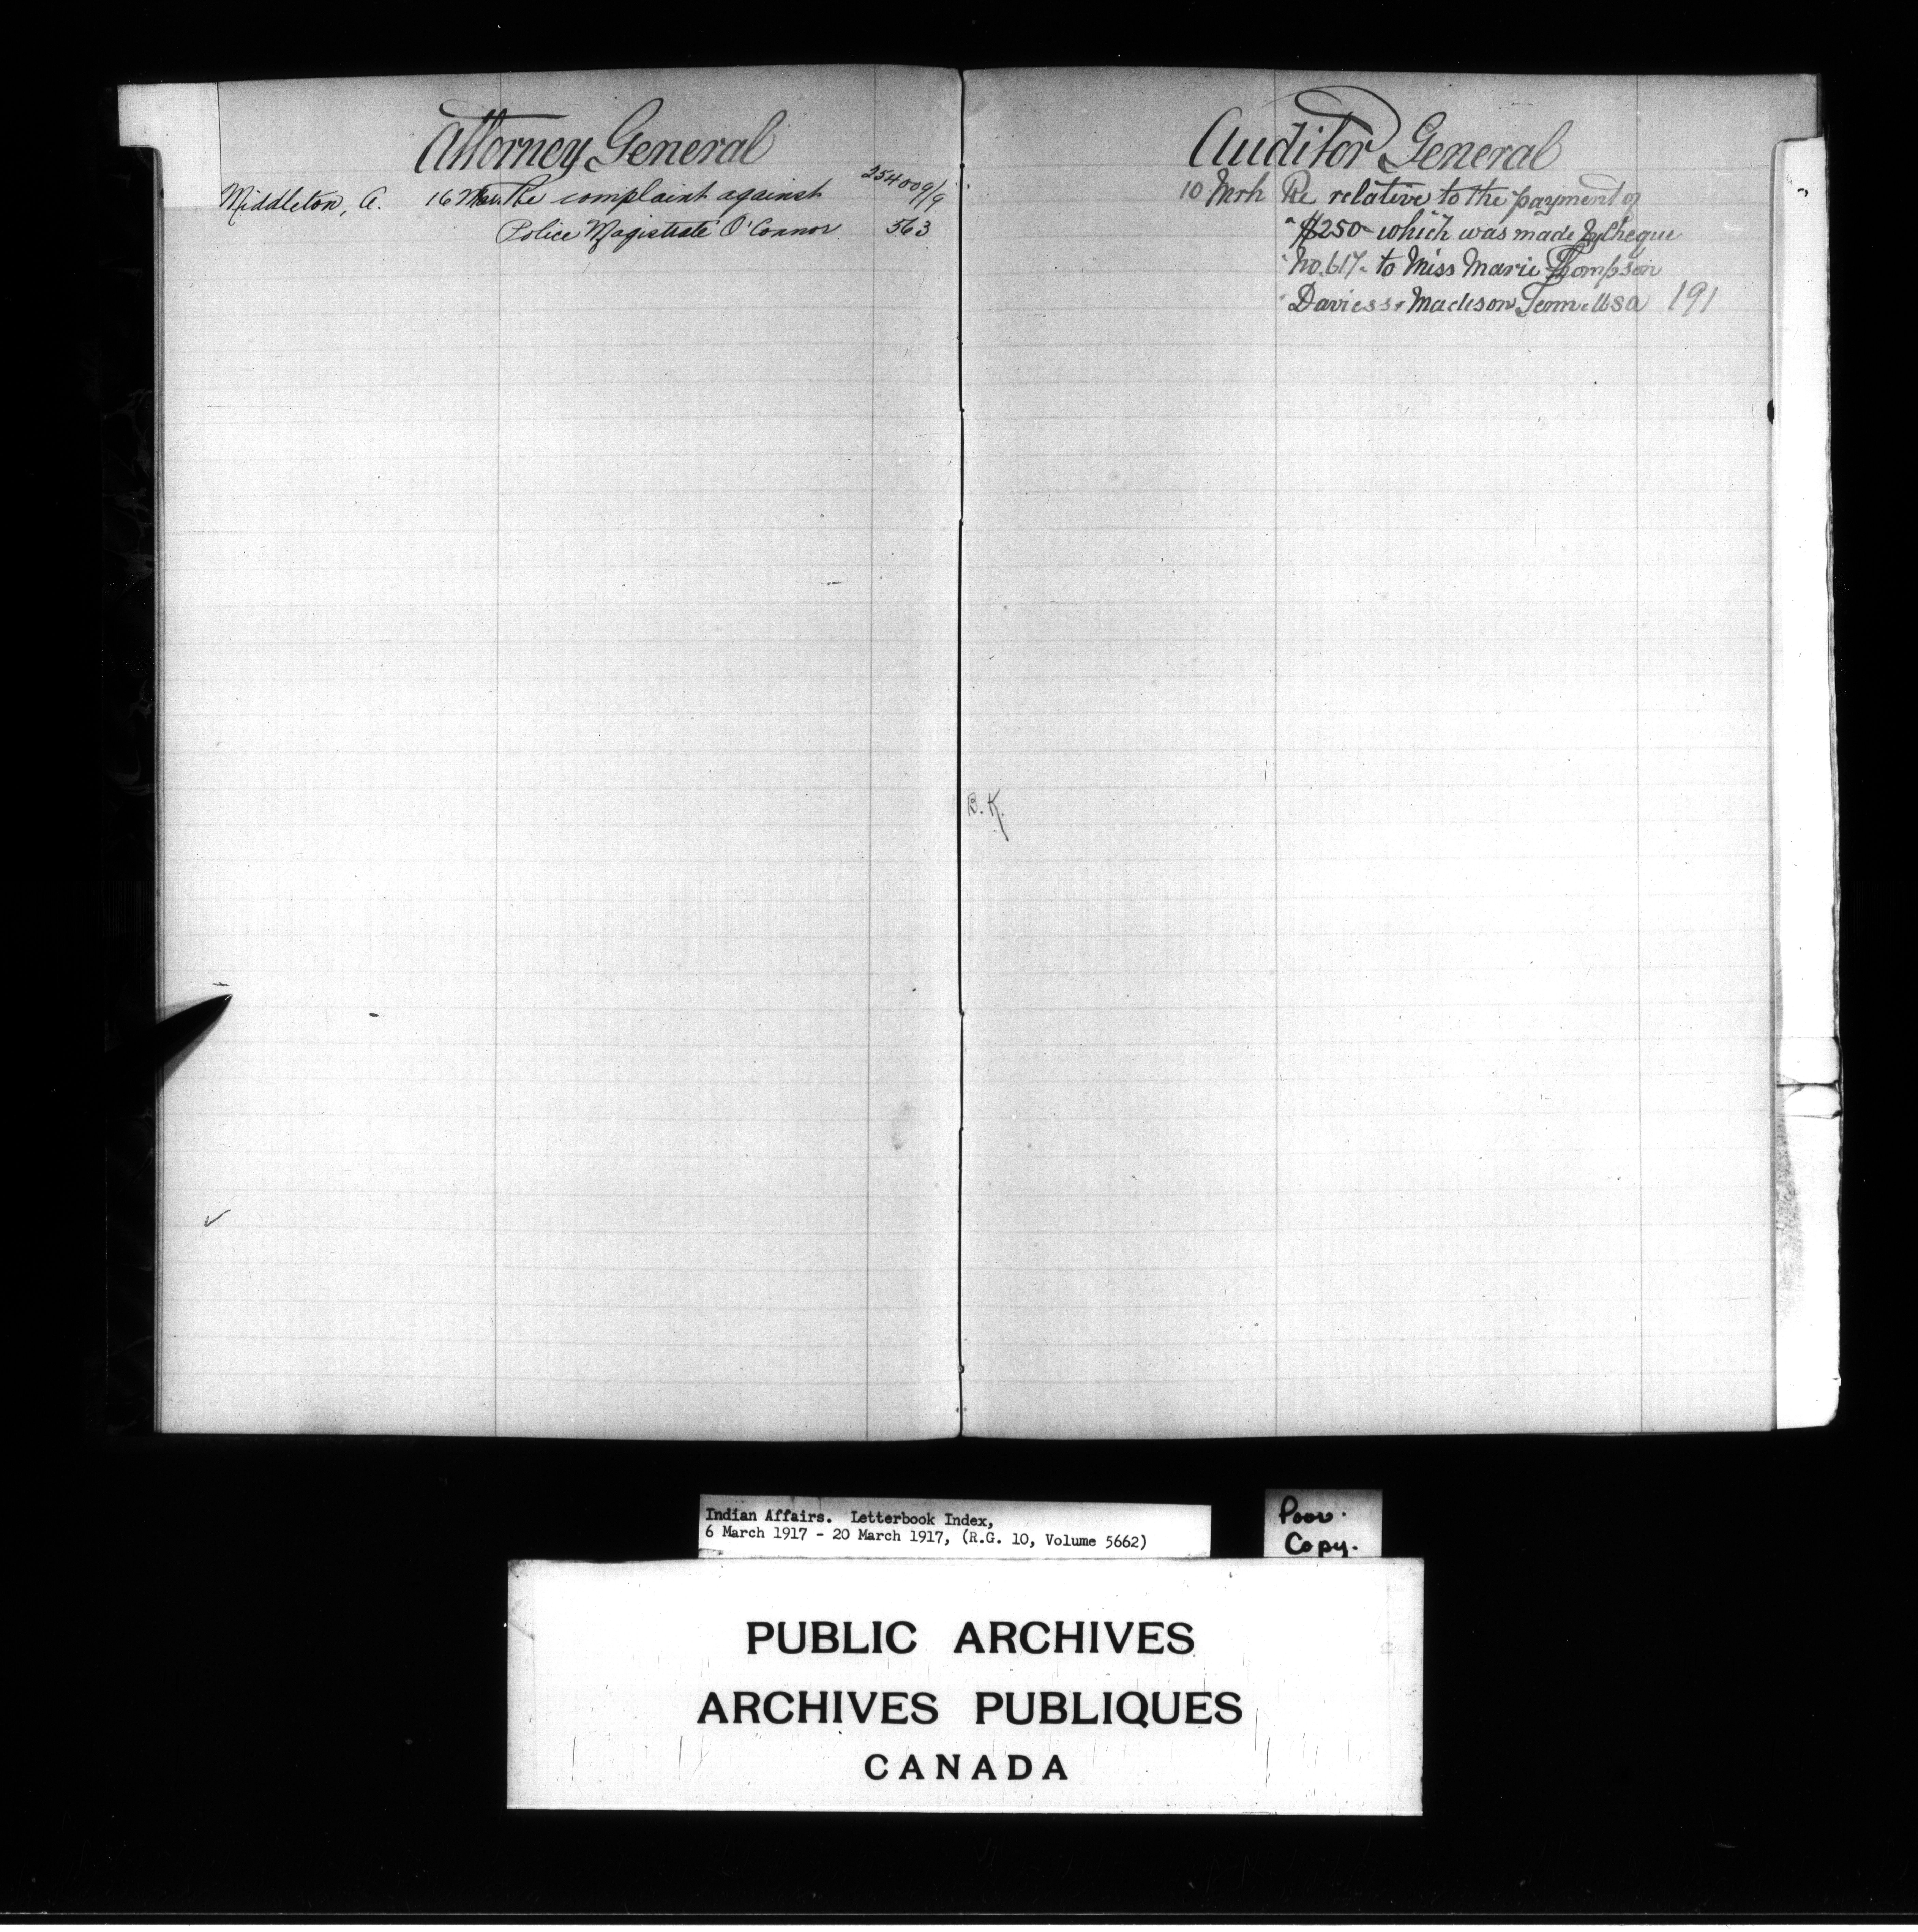 Attorney General
254009/9
Middleton, A. 16 Mar. Re complaint against
Police Magistrate O'Connor 563
Auditor General
10 Mrh Re relative to the payment of
" $250- which was made by Cheque
" No. 617. to Miss Marie Thompson
" Daviess, Madison Tenn. USA 191
B. K.
Indian Affairs. Letterbook Index,
6 March 1917 - 20 March 1917, (R.G. 10, Volume 5662)
Poor.
Copy.
PUBLIC ARCHIVES
ARCHIVES PUBLIQUES
CANADA